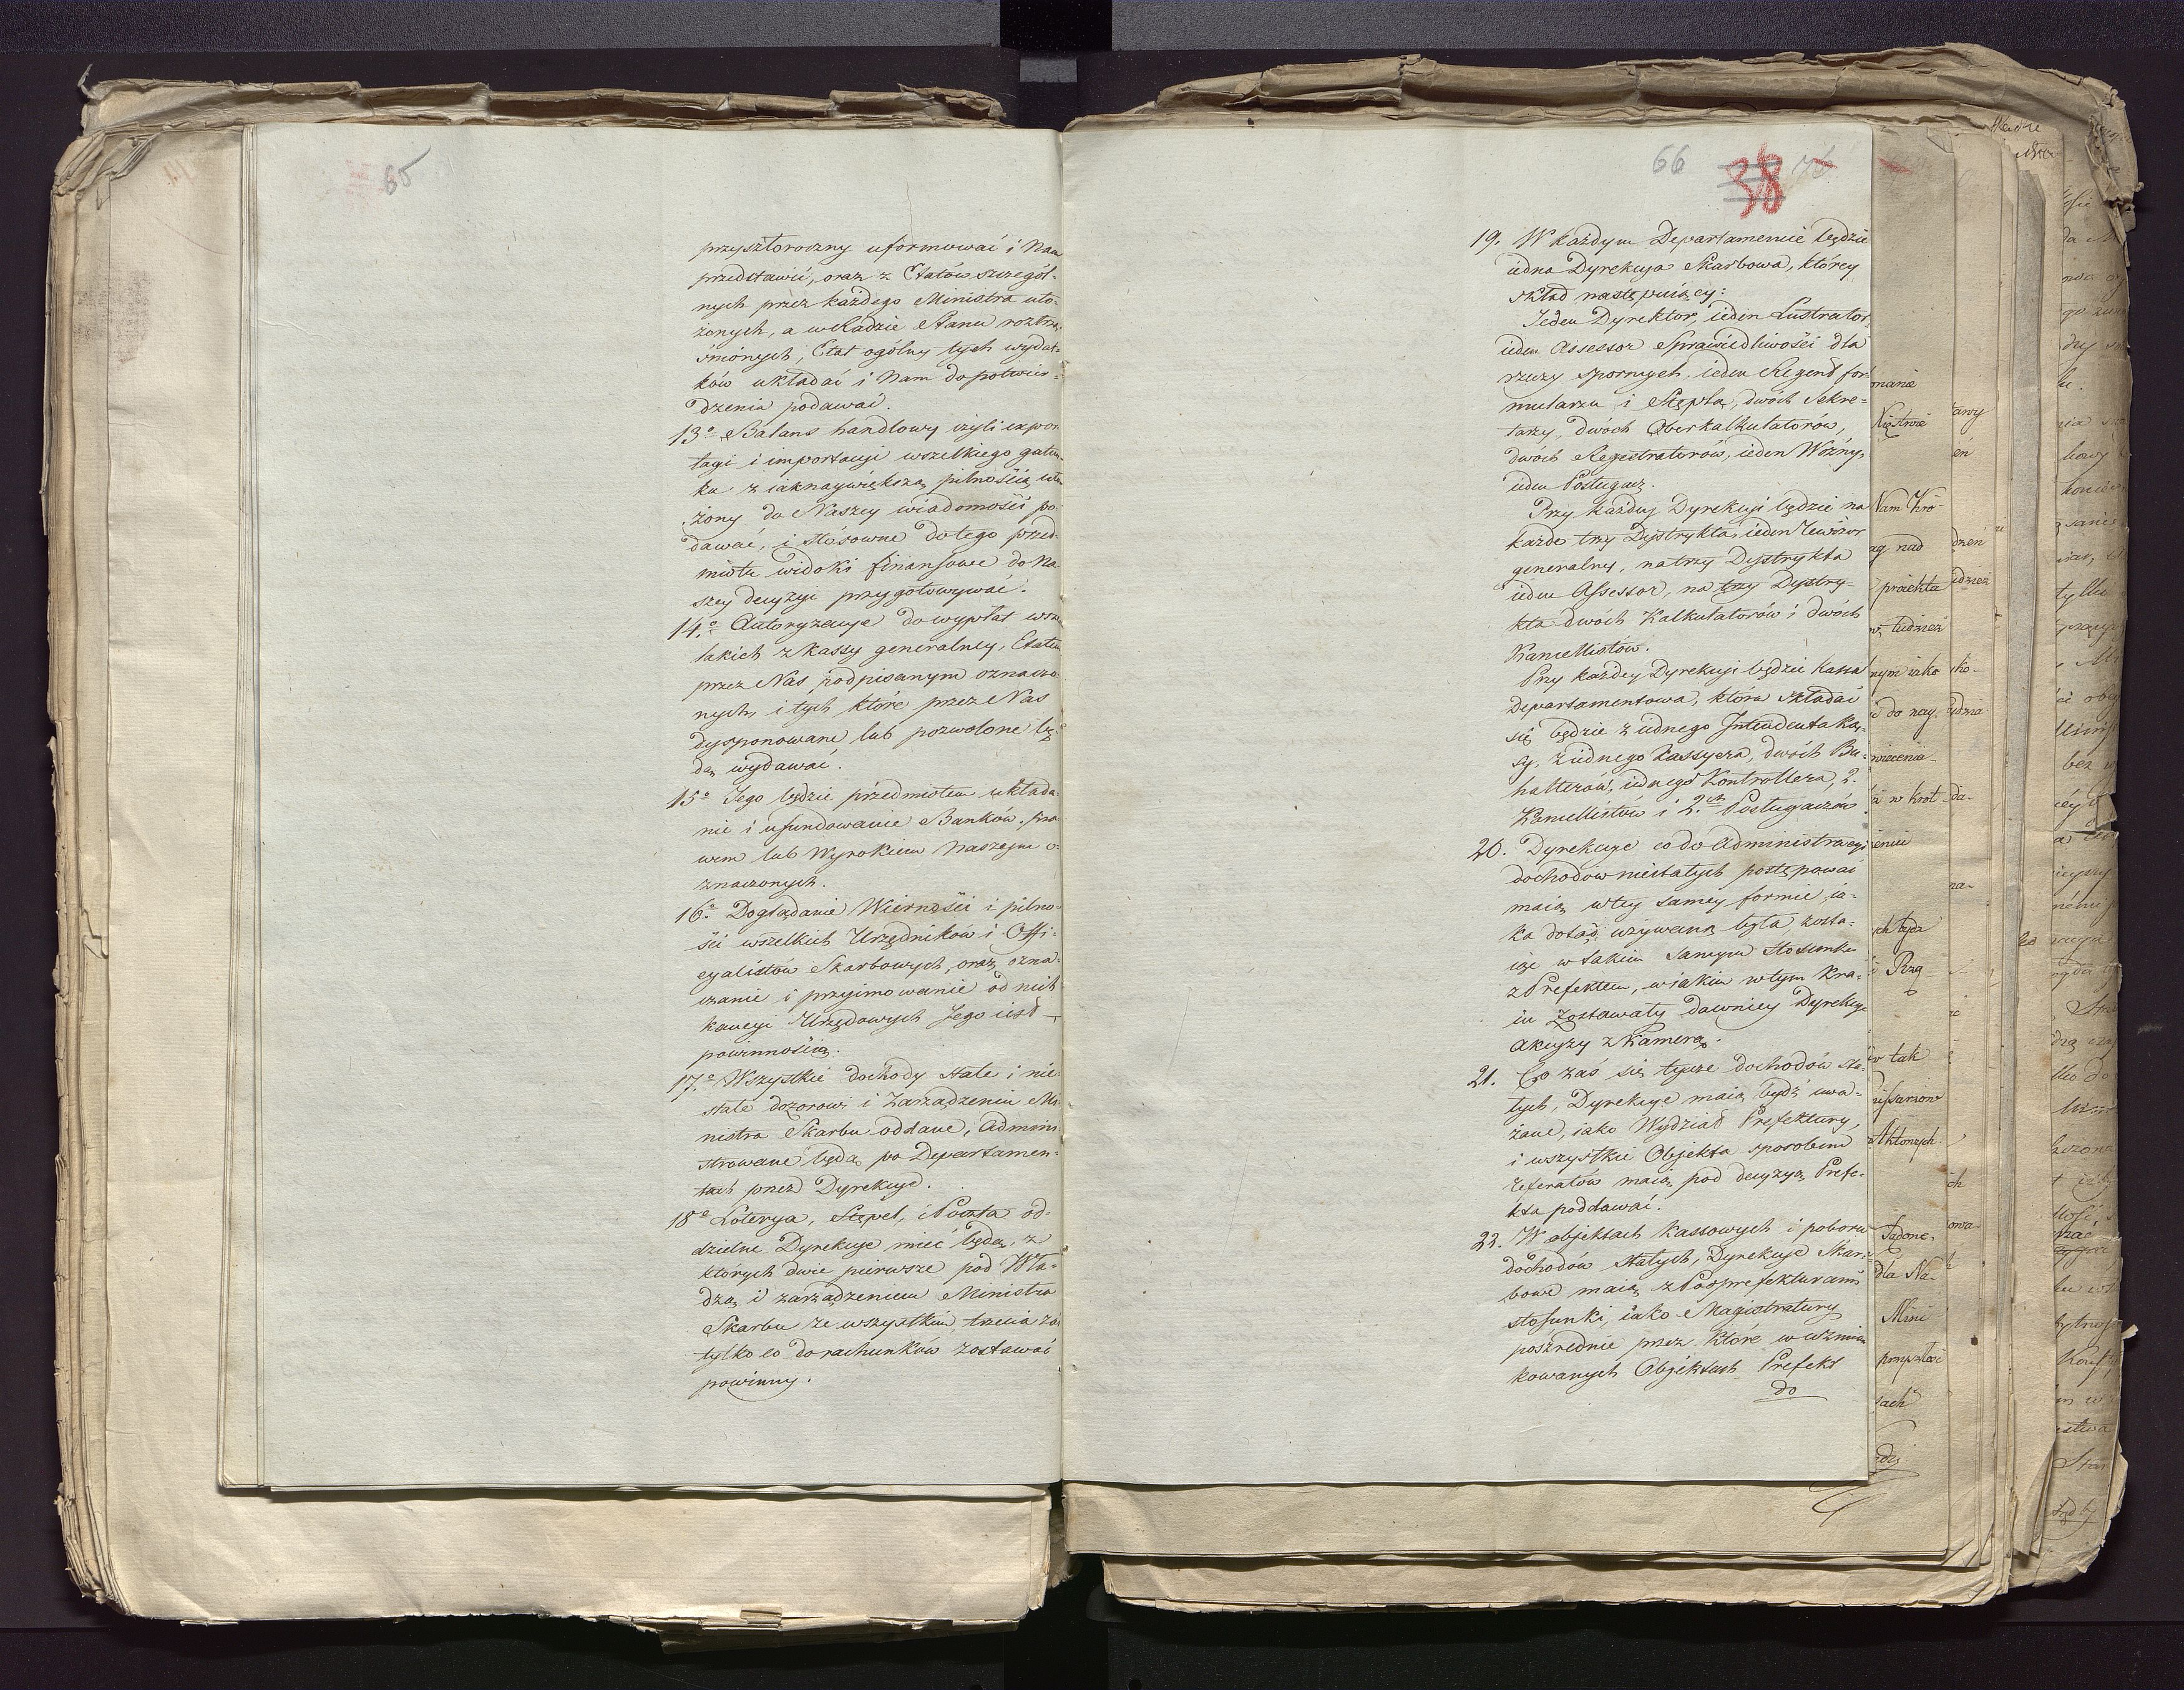 65
przyszłoroczny uformować i Nam
przedstawić, oraz z Etatów szczegól-
nych przez każdego Ministra uło-
żonych, a w Radzie Stanu roztrzą-
śnionych, Etat ogólny tych wydat-
ków układać i Nam do potwier-
dzenia podawać.
13o Balans handlowy czyli expor-
tacyi i importacyi wszelkiego gatun-
ku z iaknaywiększą pilnością uło-
żony do Naszey wiadomości po-
dawać, i stósowne do tego przed-
miotu widoki finansowe do Na-
szey decyzyi przygotowywać.
14.o Autoryzacye do wypłat wsze
lakich z kassy generalney, Etatem
przez Nas podpisanym oznaczo-
nych, i tych które przez Nas
dysponowane lub pozwolone bę-
dą, wydawać.
15o Jego będzie przedmiotem układa-
nie i ufundowanie Banków, pra-
wem lub Wyrokiem Naszym o-
znaczonych.
16.o Doglądanie Wierności i pilno-
ści wszelkich Urzędników i Offi-
cyalistów Skarbowych, oraz ozna-
czanie i przyimowanie od nich
kaucyi Urzędowych Jego iest
powinnością.
17.o Wszystkie dochody stałe i nie-
stałe dozorowi i Zarządzeniu Mi-
nistra Skarbu oddane, Admini-
strowane będą po Departamen-
tach przez Dyrekcye.
18o Loterya, Stępel, i Poczta od-
dzielne Dyrekcye mieć będą, z
których dwie pierwsze pod Wła-
dzą i zarządzeniem Ministra
Skarbu ze wszystkim, trzecia zaś
tylko co do rachunków zostawać
powinny.
66 38
19. W każdym Departamencie będzie
iedna Dyrekcya Skarbowa, którey
skład następuiący:
Jeden Dyrektor, ieden Lustrator,
ieden Assessor Sprawiedliwości dla
rzeczy spornych, ieden Regent for-
mularzu i Stępla, dwóch Sekre-
tarzy, dwóch Oberkalkulatorów,
dwóch Regestratorów, ieden Woźny,
ieden Posługacz.
Przy każdey Dyrekcyi będzie na
każde trzy Dystrykta, ieden Rewizor
generalny, na trzy Dystrykta
ieden Assessor, na trzy Dystry-
kta dwóch Kalkulatorów i dwóch
Kancellistów.
Przy każdey Dyrekcyi będzie kassa
Departamentowa, która składać
się będzie z iednego Intendenta Kas-
sy, z iednego Kassyera, dwóch Bu-
halterów, iednego Kontrollera, 2.
Kancellistów i 2.ch Posługaczów
20. Dyrekcye co do Administracyi
dochodów niestałych postępować
maią w tey samey formie, ia-
ka dotąd używaną była, zosta-
iąc w takim samym Stosunku
z Prefektem, w iakim w tym kra-
iu zostawały dawniey Dyrekcye
Akcyzy z Kamerą.
21. Co zaś się tycze dochodów sta-
łych, Dyrekcye maią bydź uwa-
żane, iako Wydział Prefektury,
i wszystkie Objekta sposobem
referatów maią pod decyzyą Prefe-
kta poddawać.
22. W objektach kassowych i poboru
dochodów stałych, Dyrekcye Skar-
bowe maią z Podprefekturami
stosunki, iako Magistratury
pośrednie przez które w wzmian
kowanych Objektach Prefekt
do